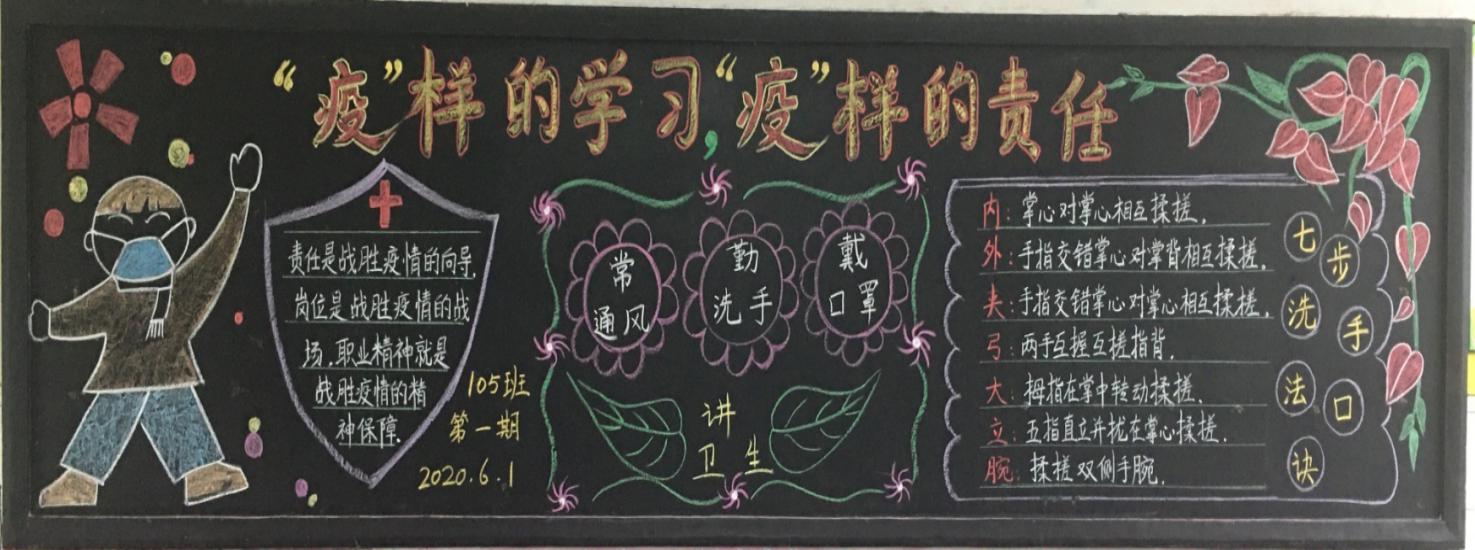 “疫”样的学习,“疫”样的责任
责任是战胜疫情的向导.
岗位是战胜疫情的战
场.职业精神就是
战胜疫情的精
神保障.
105班
第一期
2020.6.1
常
通风
勤
洗手
戴
口罩
讲
卫生
内:掌心对掌心相互揉搓.
外:手指交错掌心对掌背相互揉搓.
夹:手指交错掌心对掌心相互揉搓.
弓:两手互握互搓指背.
大:拇指在掌中转动揉搓.
立:五指直立并扰在掌心揉搓.
腕:揉搓双侧手腕.
七步洗手法口诀